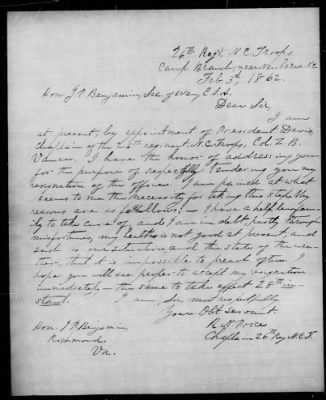 26th Regt. N.C. Troops
Camp Branch, near New Berne N.C.
Feb 3d, 1862.
Hon J. P. Benjamin, Sec of War, C.S.A.
Dear Sir,
I am
at present, by appointment of President Davis,
chaplain of the 26th regiment, N.C. Troops, Col. Z. B.
Vance. I have the honor of addressing you
for the purpose of respectfully tendering you my
resignation of this office. I am pained at what
seems to me the necessity for taking this step. My
reasons are as follows: — I have a
to take care of and I am in debt, partly through
misfortunes, my health is not good at present, and
such is our situation, and the state of the wea-
ther, that it is impossible to preach often. I
hope you will see proper to accept my resignation
immediately — the same to take effect 28th in-
stant. I am, Sir, most respectfully
Your Obt servant.
Hon. J. P. Benjamin,
R. N.
Richmond,
Chaplain 26th Reg. N.C.T.
Va.